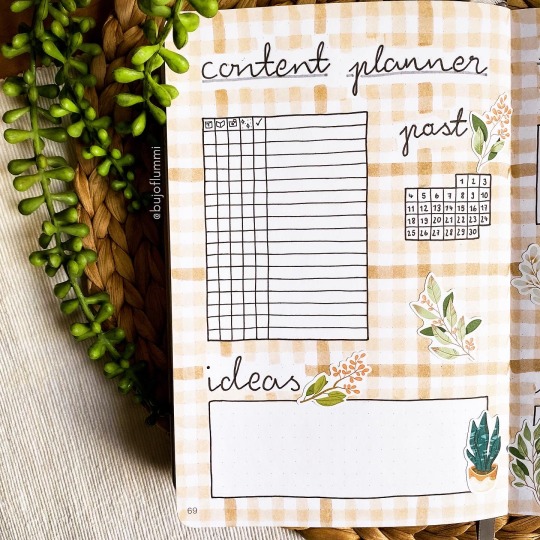 content planner
past
1 2 3
4 5 6 7 8 9 10
11 12 13 14 15 16 17
18 19 20 21 22 23 24
25 26 27 28 29 30
ideas
69
@bujoflummi